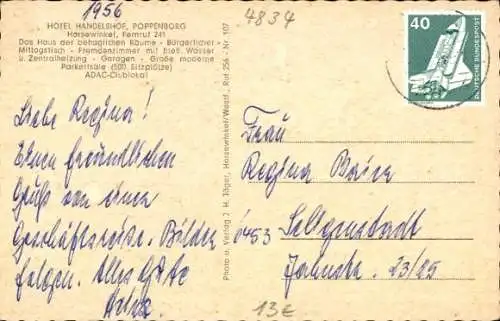 1956
4834
HOTEL HANDELSHOF, POPPENBORG
Harsewinkel, Fernruf 241
Das Haus der behaglichen Räume - Bürgerlicher
Mittagstisch - Fremdenzimmer mit fließ. Wasser
u. Zentralheizung - Garagen - Große moderne
Parkettsäle (500 Sitzplätze)
ADAC-Clublokal
Liebe Regina!
Einen freundlichen
Gruß von einer
Geschäftsreise. Bilder
folgen. Alles Gute
Photo u. Verlag J. H. Jäger, Harsewinkel/Westf., Ruf 256 - Nr. 107
40
DEUTSCHE BUNDESPOST
Frau
Regina Baier
6453 Seligenstadt
Jahnstr. 23/25
13€